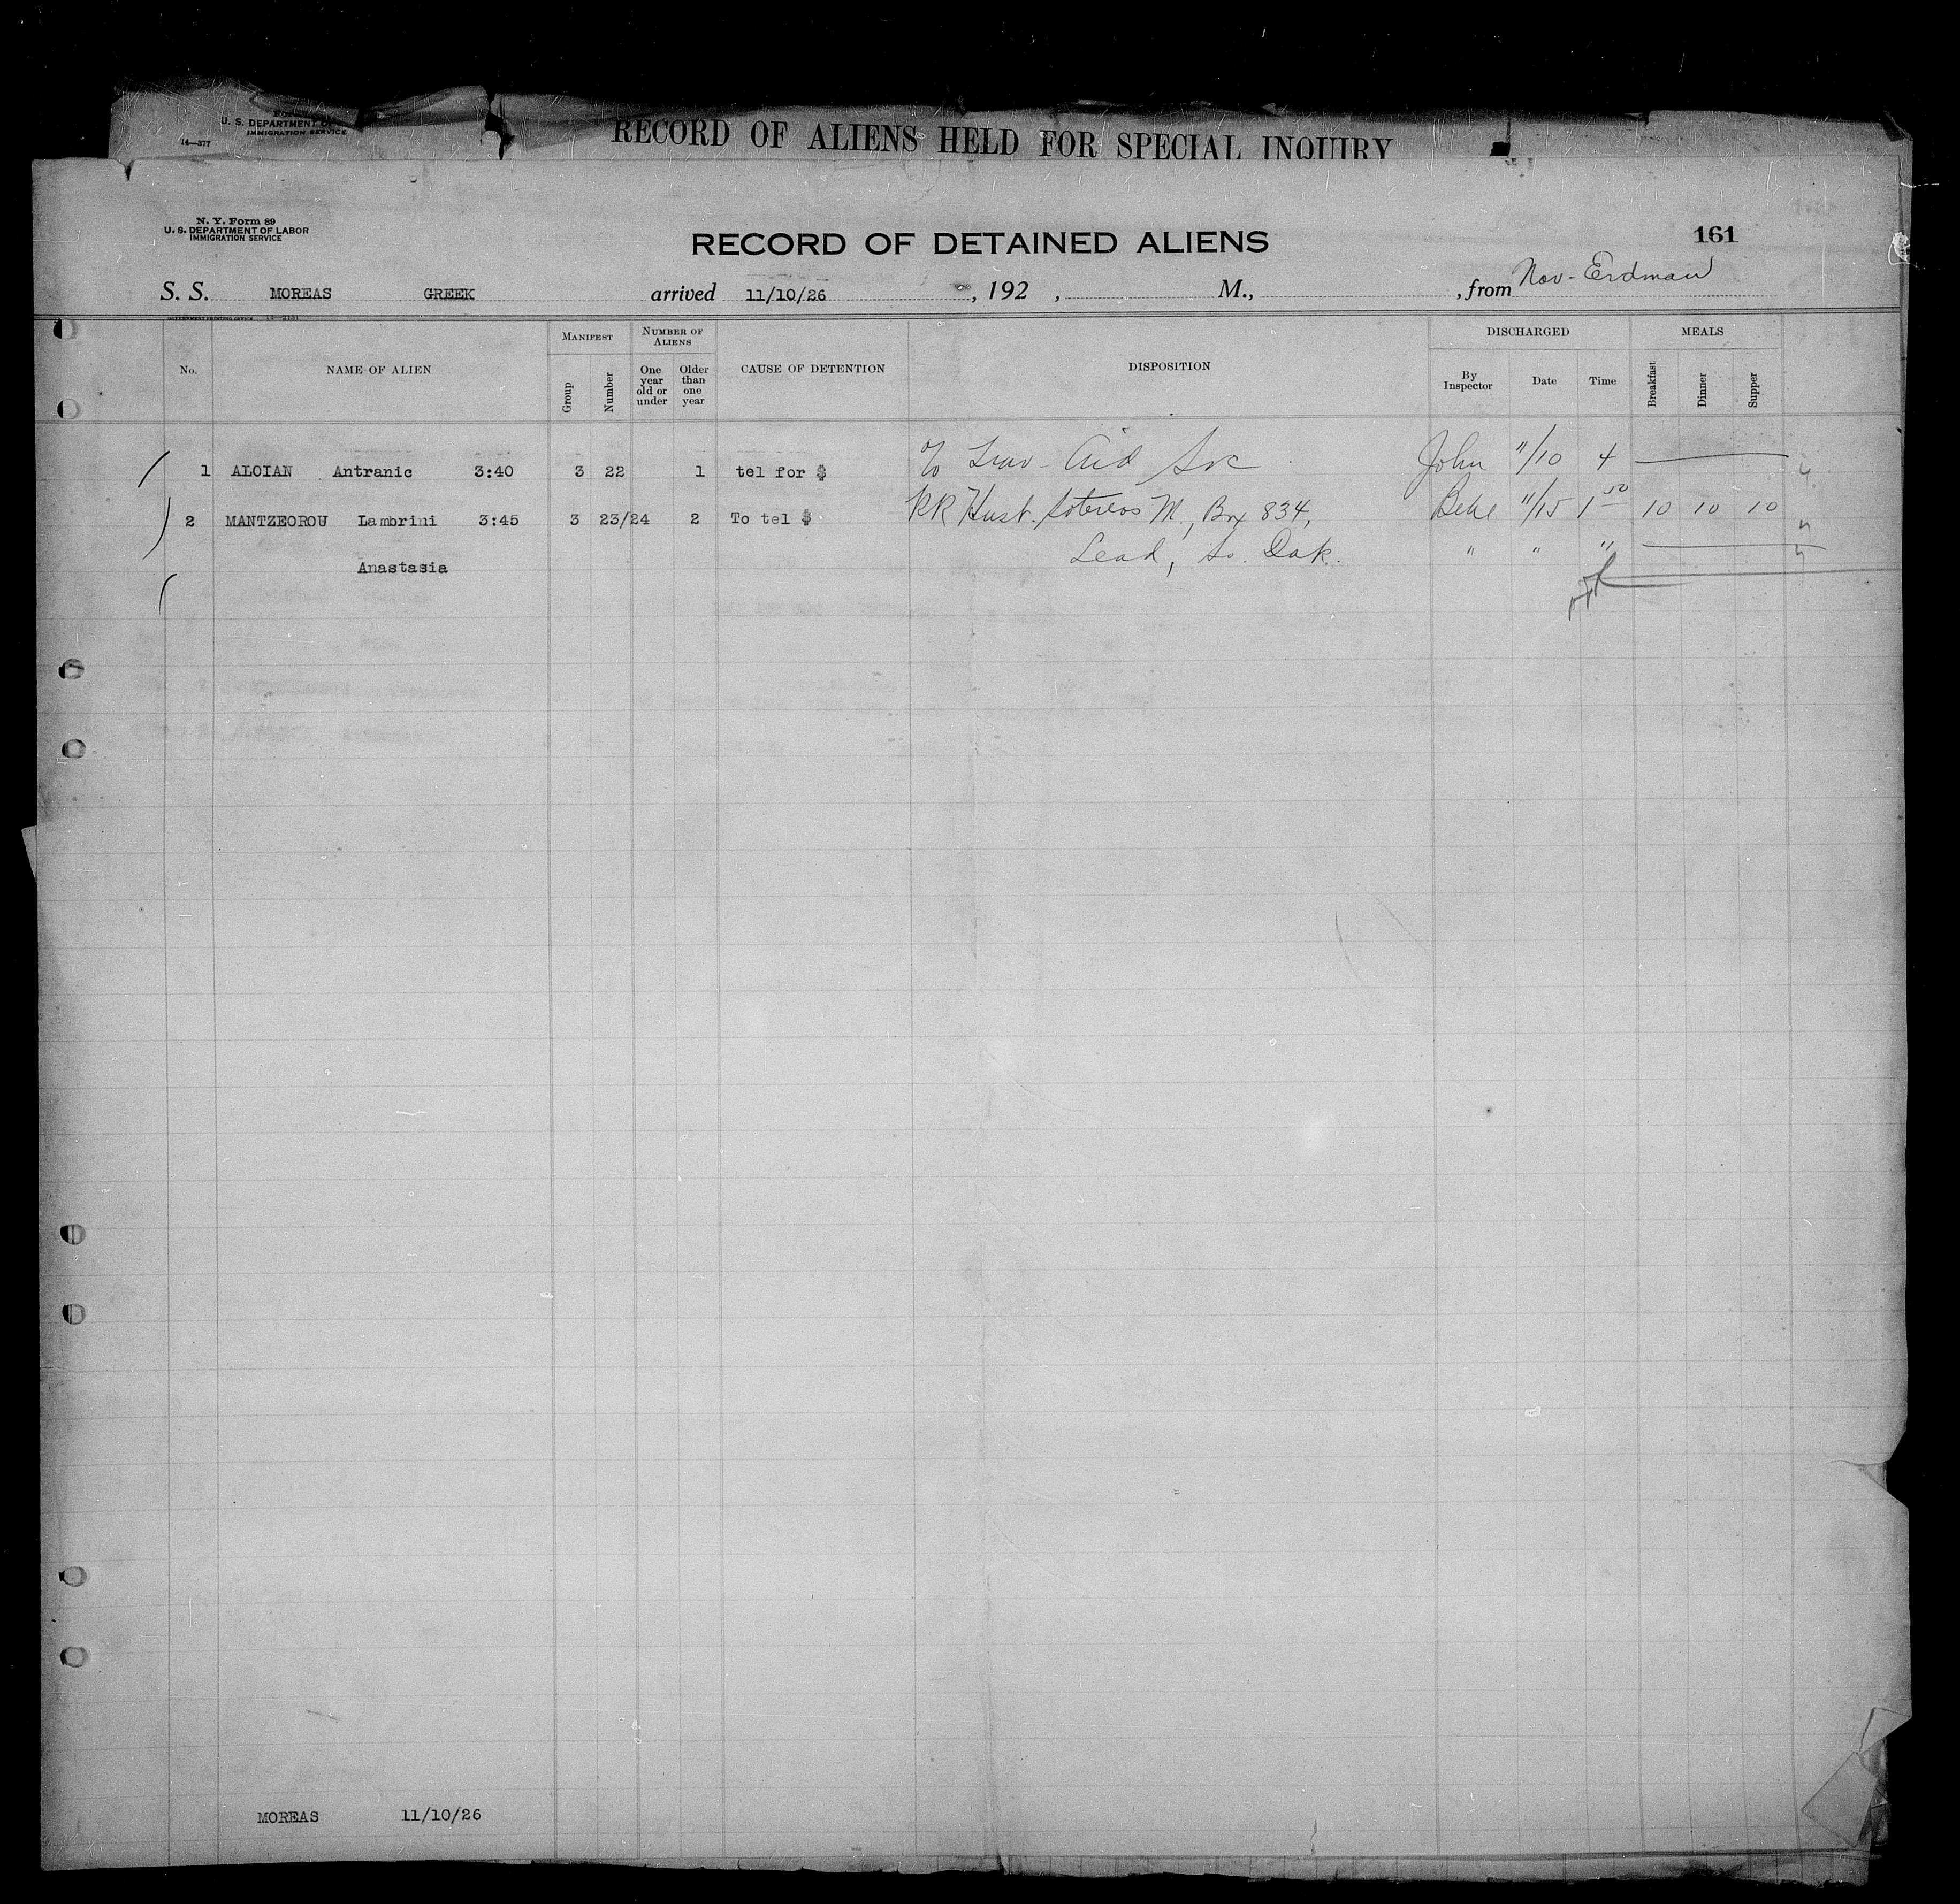 U. S. DEPARTMENT OF
IMMIGRATION SERVICE
14—377
RECORD OF ALIENS HELD FOR SPECIAL INQUIRY
N. Y. Form 89
U. S. DEPARTMENT OF LABOR
IMMIGRATION SERVICE
RECORD OF DETAINED ALIENS
161
S. S. MOREAS GREEK arrived 11/10/26 , 192 , M., , from Nov - Erdman
GOVERNMENT PRINTING OFFICE
No. NAME OF ALIEN MANIFEST Group Number NUMBER OF ALIENS One year old or under Older than one year CAUSE OF DETENTION DISPOSITION DISCHARGED By Inspector Date Time MEALS Breakfast Dinner Supper
1 ALOIAN Antranic 3:40 3 22 1 tel for $ Trav - Aid Soc John 11/10 4
2 MANTZEOROU Lambrini 3:45 3 23/24 2 To tel $ RR Husb. Soterios M., Box 834, 11/15 1 50 10 10 10
Anastasia Lead, So. Dak. " " "
MOREAS 11/10/26